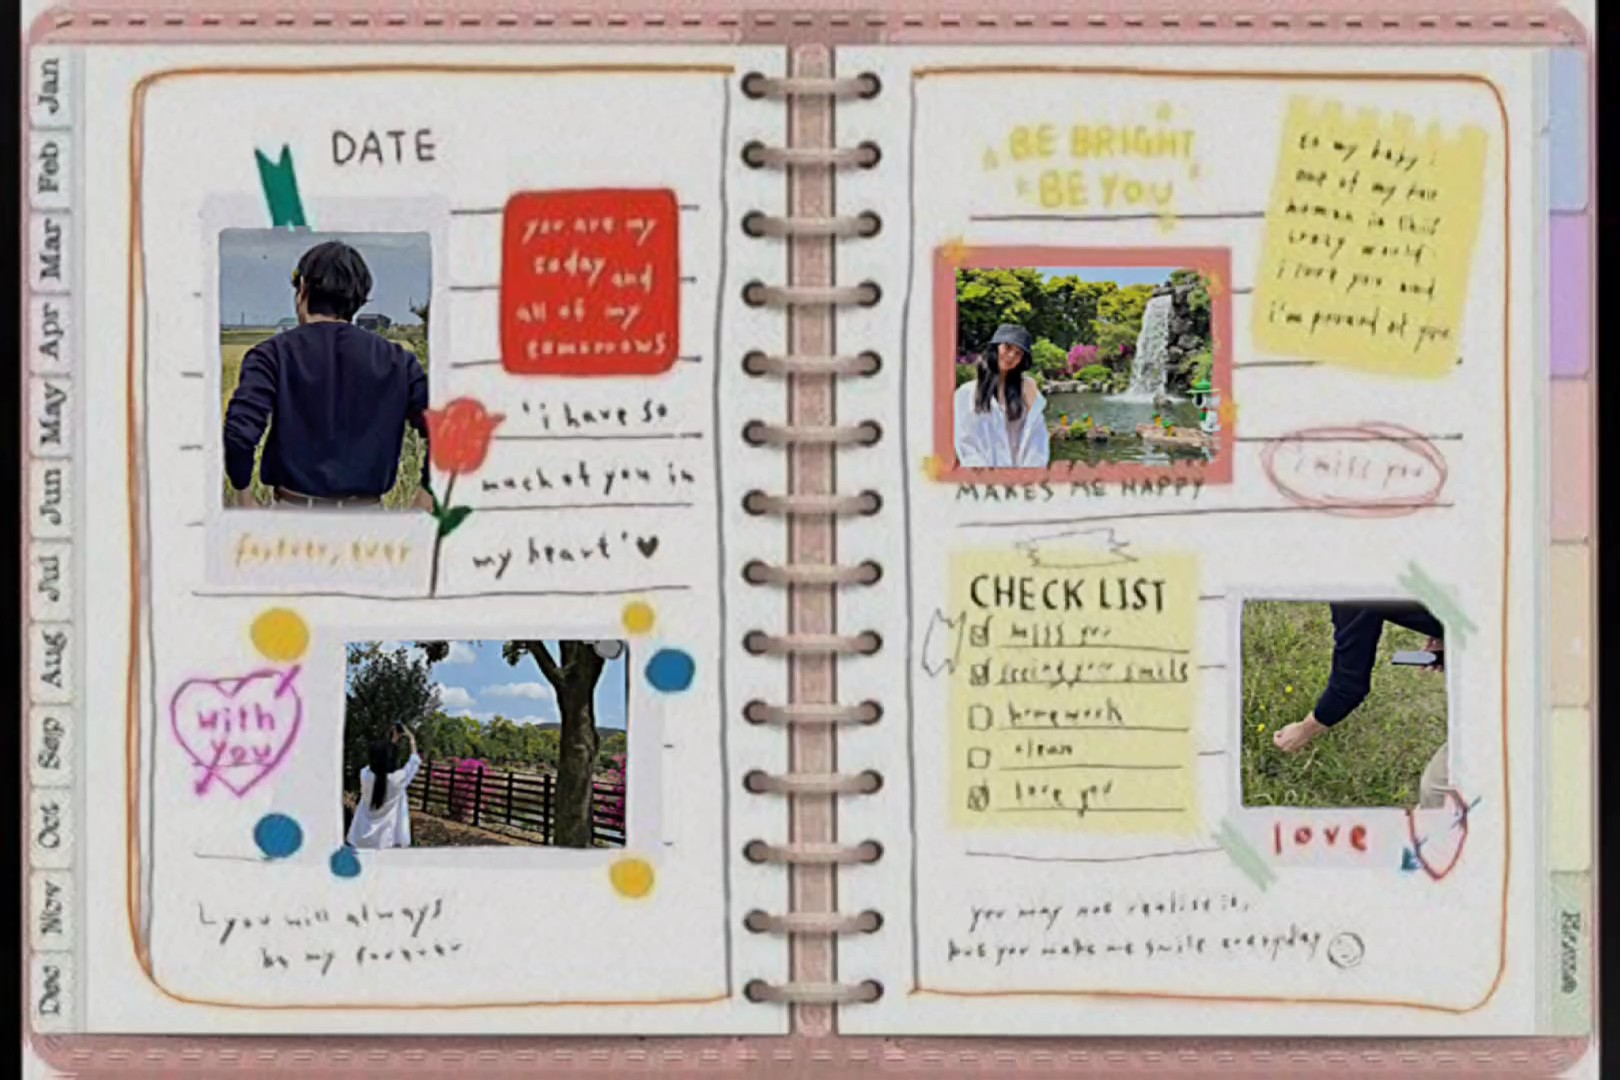 Jan
Feb
Mar
Apr
May
Jun
Jul
Aug
Sep
Oct
Nov
Dec
DATE
you are my
today and
all of my
tomorrows
'i have so
much of you in
my heart' ♥
forever, ever
with
you
you will always
be my forever
BE BRIGHT
BE YOU
to my baby :
one of my fav
human in this
crazy world.
i love you and
i'm pround of you
MAKES ME HAPPY
i miss you
CHECK LIST
miss you
seeing your smile
homework
clean
love you
love
you may not realise it,
but you make me smile everyday